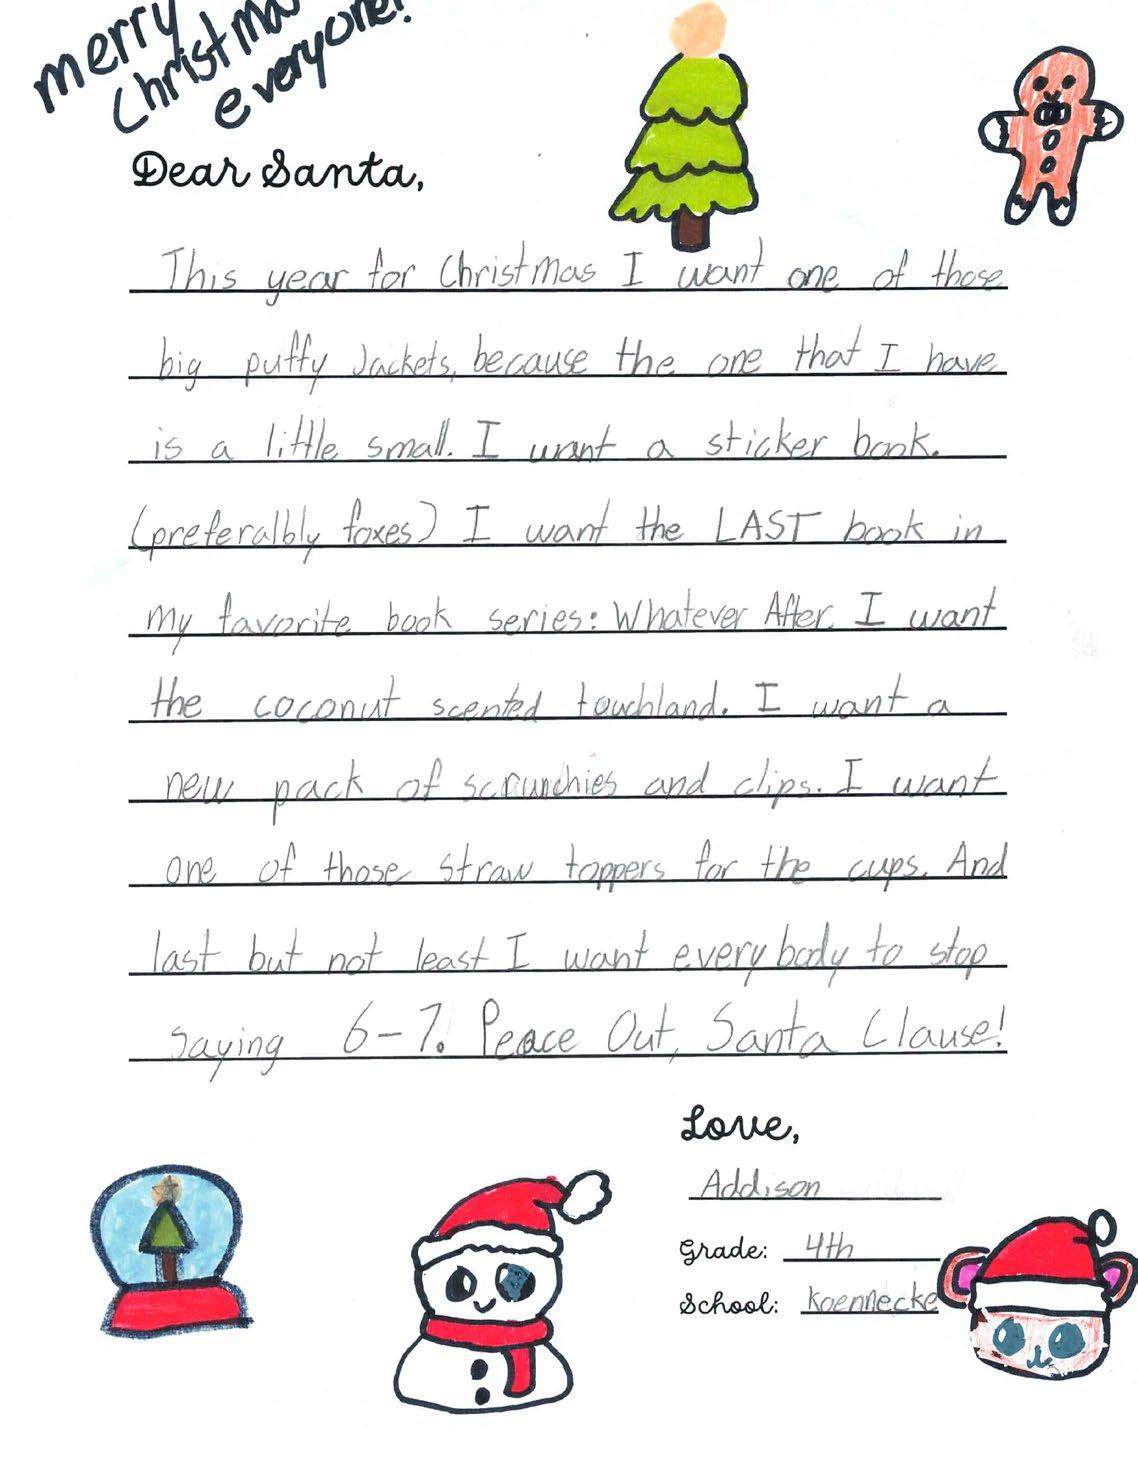 merry
Christmas
everyone!
Dear Santa,
This year for Christmas I want one of those
big puffy Jackets, because the one that I have
is a little small. I want a sticker book.
(preferalbly foxes) I want the LAST book in
my favorite book series: Whatever After. I want
the coconut scented touchland. I want a
new pack of scrunchies and clips. I want
one of those straw toppers for the cups. And
last but not least I want everybody to stop
saying 6-7. Peace Out, Santa Clause!
Love,
Addison
Grade: 4th
School: Koennecke